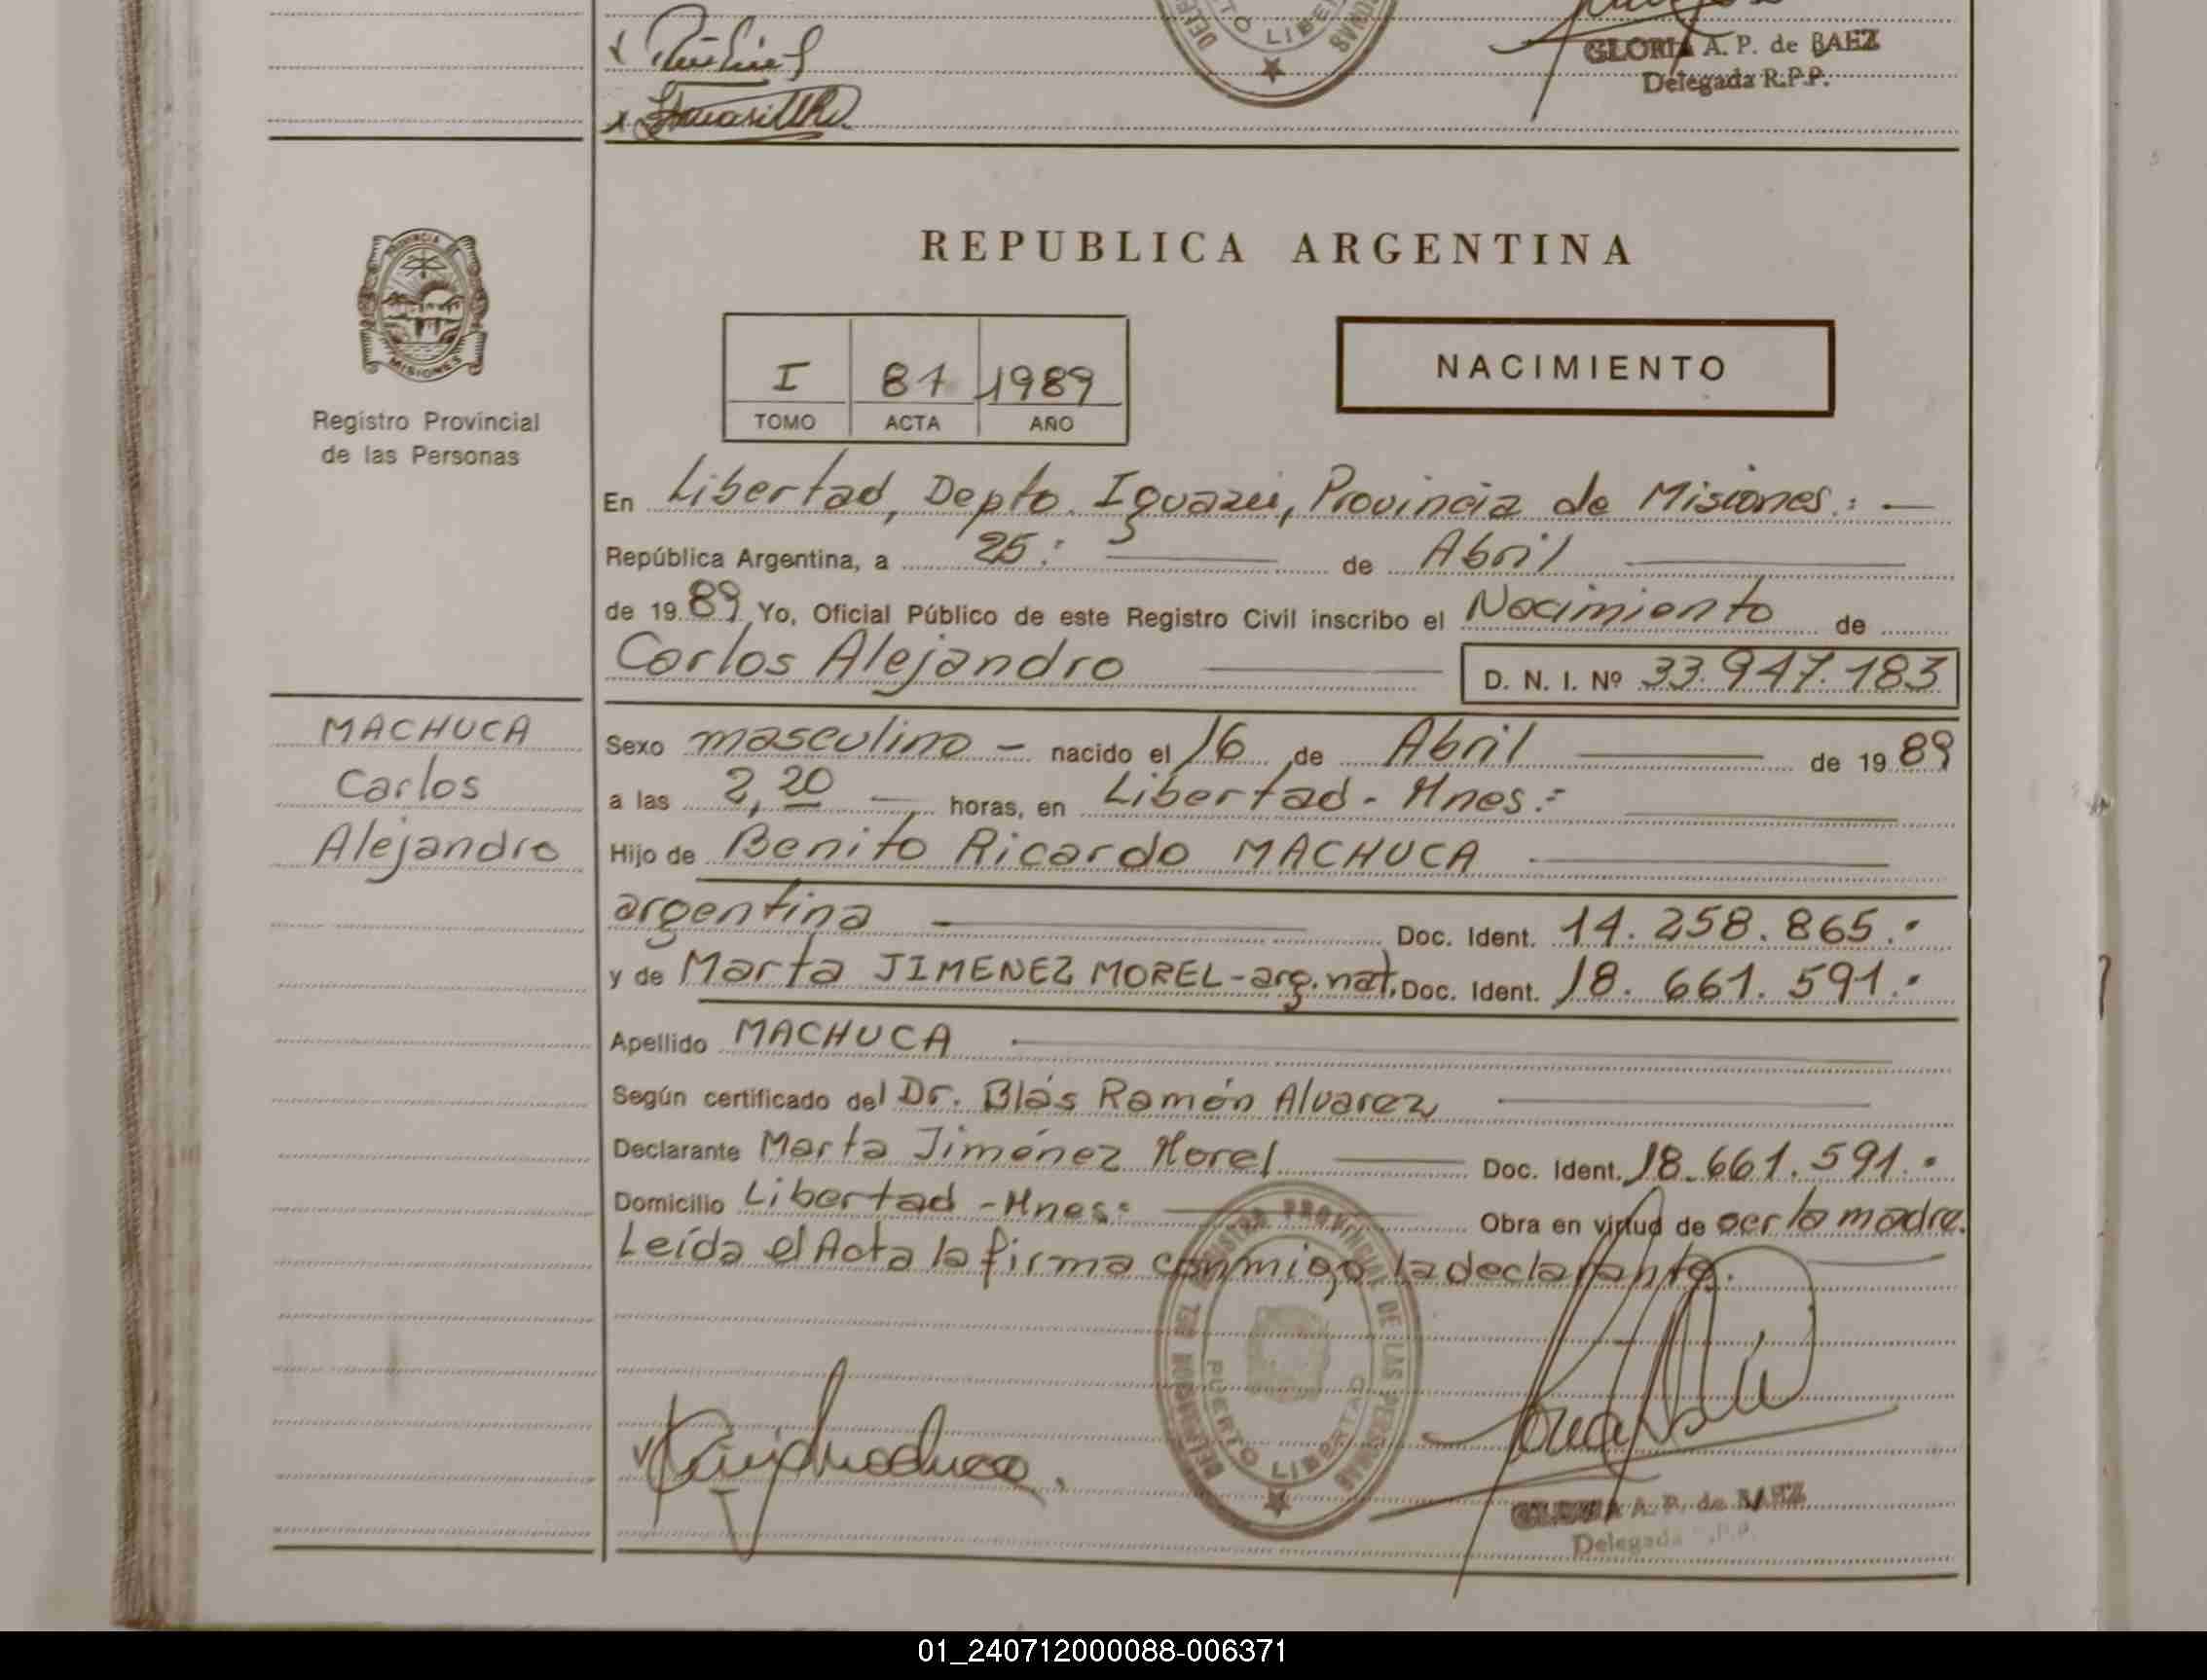 GLORIA A. P. de BAEZ
Delegada R.P.P.
PROVINCIA
MISIONES
Registro Provincial
de las Personas
REPUBLICA ARGENTINA
I 81 1989
TOMO ACTA AÑO
NACIMIENTO
En Libertad, Depto. Iguazú, Provincia de Misiones.: —
República Argentina, a 25: — de Abril —
de 1989 Yo, Oficial Público de este Registro Civil inscribo el Nacimiento de
Carlos Alejandro — D. N. I. Nº 33.947.183
MACHUCA
Carlos
Alejandro
Sexo masculino — nacido el 16 de Abril — de 1989
a las 2,20 — horas, en Libertad - Mnes.= —
Hijo de Benito Ricardo MACHUCA —
argentina — Doc. Ident. 14.258.865.-
y de Marta JIMENEZ MOREL-arg.nat. Doc. Ident. 18.661.591.-
Apellido MACHUCA —
Según certificado del Dr. Blás Ramón Alvarez —
Declarante Marta Jiménez Morel — Doc. Ident. 18.661.591.-
Domicilio Libertad - Mnes: — Obra en virtud de ser la madre.
Leída el Acta la firma conmigo la declarante.
REGISTRO PROVINCIAL DE LAS PERSONAS
PUERTO LIBERTAD
GLORIA A. P. de BAEZ
Delegada
01_240712000088-006371